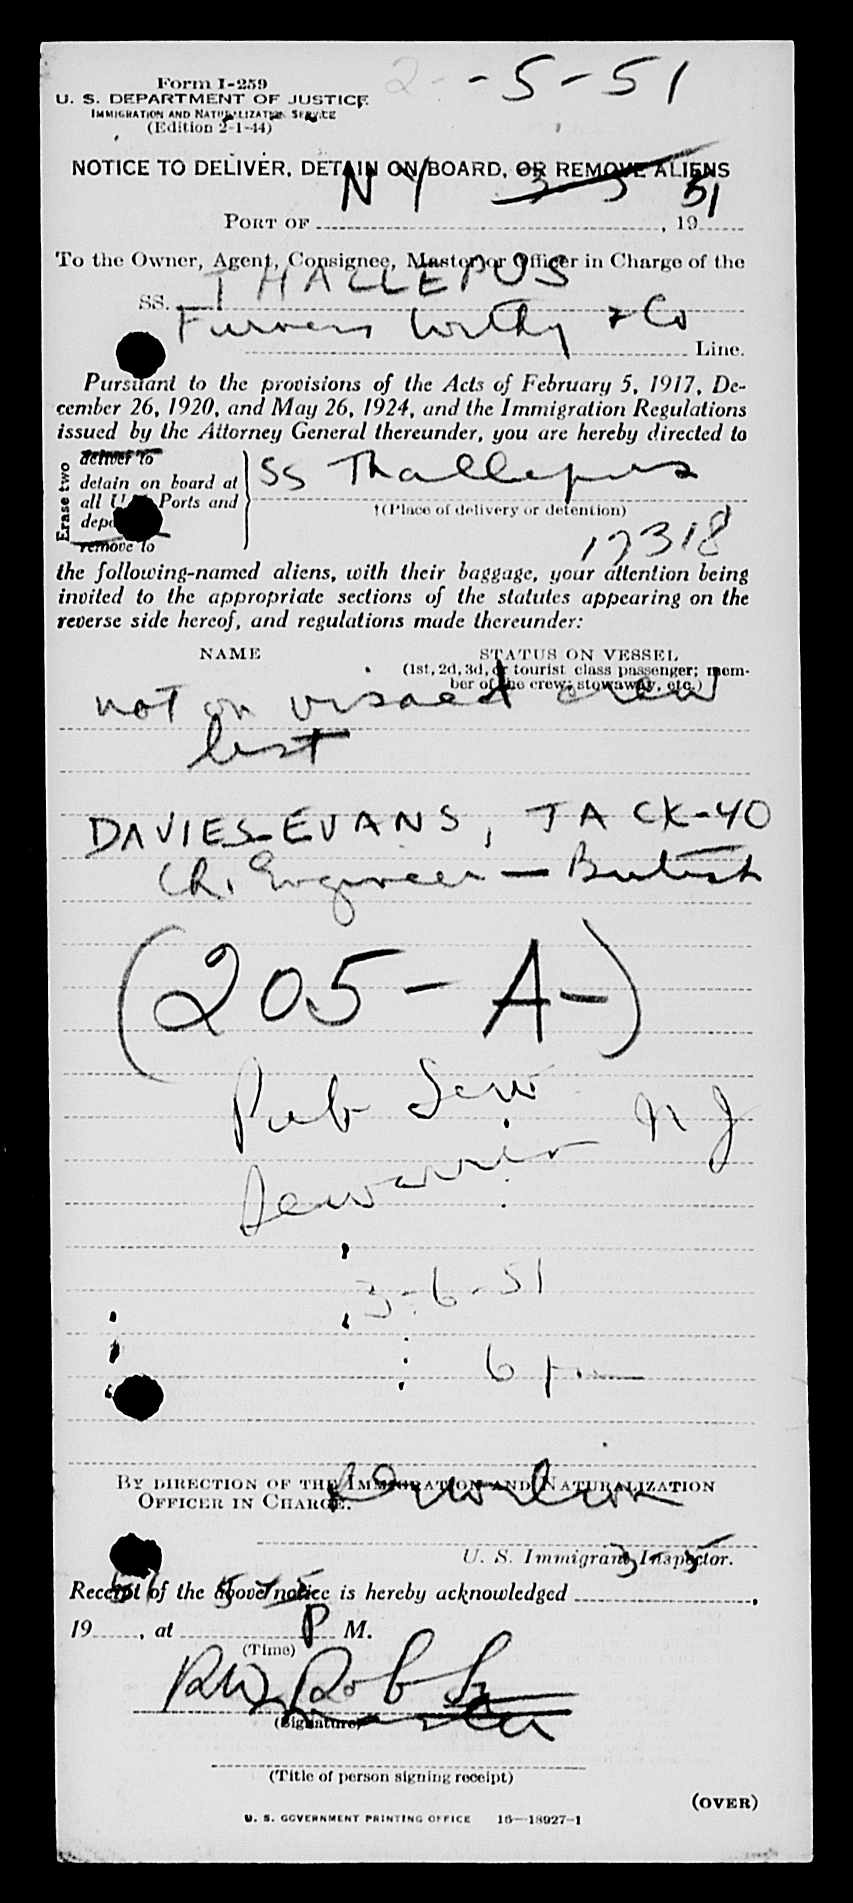 2--5-51
Form I-259
U. S. DEPARTMENT OF JUSTICE
IMMIGRATION AND NATURALIZATION SERVICE
(Edition 2-1-44)
NOTICE TO DELIVER, DETAIN ON BOARD, OR REMOVE ALIENS
PORT OF N Y 3-5, 1951
To the Owner, Agent, Consignee, Master or Officer in Charge of the
SS. THALLEPUS
Furness Withy & Co Line.
Pursuant to the provisions of the Acts of February 5, 1917, De-
cember 26, 1920, and May 26, 1924, and the Immigration Regulations
issued by the Attorney General thereunder, you are hereby directed to
Erase two
deliver to
detain on board at
all U.S. Ports and
deport
remove to
SS Thallepus
†(Place of delivery or detention)
17318
the following-named aliens, with their baggage, your attention being
invited to the appropriate sections of the statutes appearing on the
reverse side hereof, and regulations made thereunder:
NAME STATUS ON VESSEL
(1st, 2d, 3d, or tourist class passenger; mem-
ber of the crew; stowaway, etc.)
not on visaed crew
list
DAVIES-EVANS, JACK-40
Ch. Engineer — British
(205-A-)
Pub Serv
N J
3-6-51
6 pm
BY DIRECTION OF THE IMMIGRATION AND NATURALIZATION
OFFICER IN CHARGE.
U. S. Immigrant Inspector.
Receipt of the above notice is hereby acknowledged 3-5,
19 51, at 5 55 P M.
(Time)
(Signature)
(Title of person signing receipt)
(OVER)
U. S. GOVERNMENT PRINTING OFFICE 16—18927-1